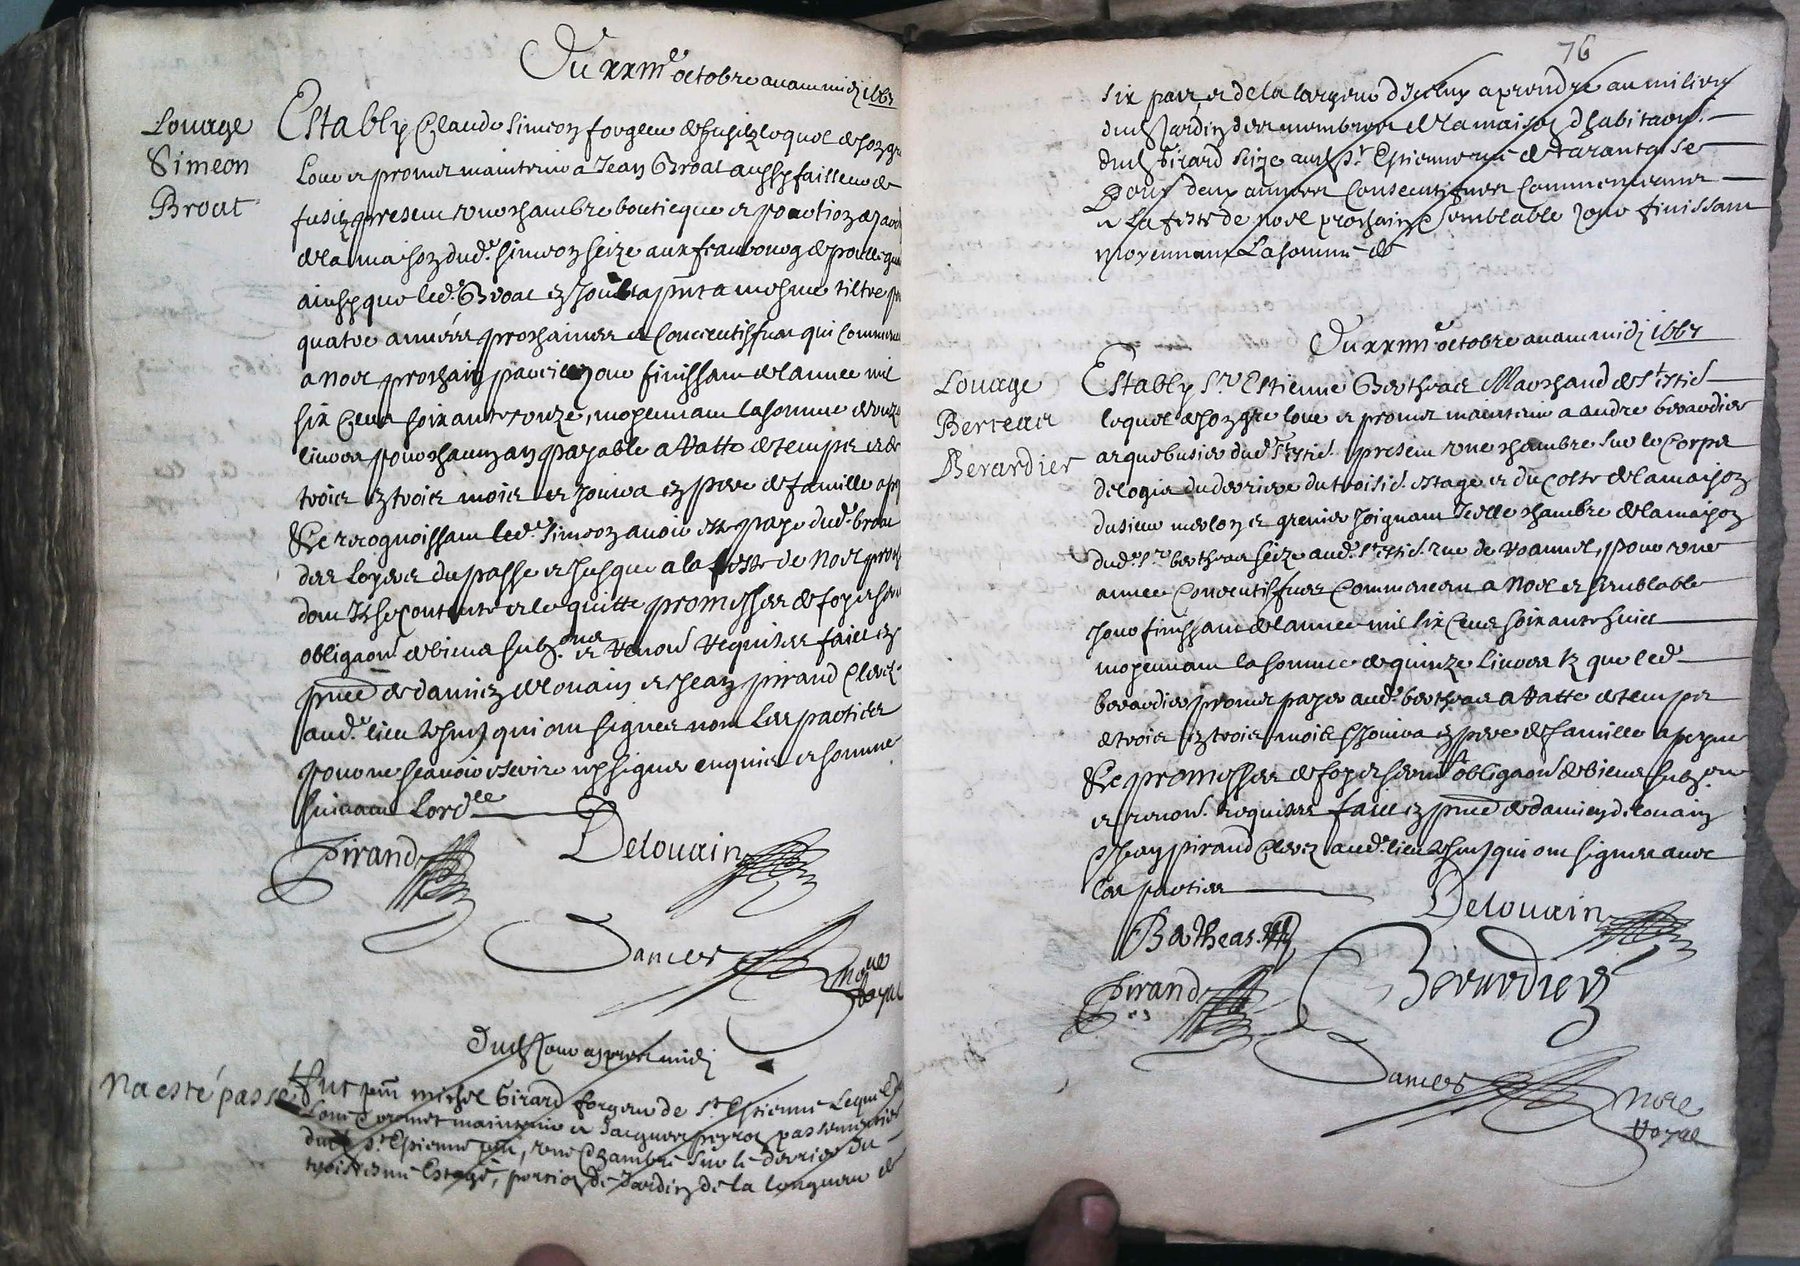 Du xxiii.e octobre avant midy 1667
Louage
Simeon
Broat
Estably Claude Simeon forgeur de fusilz lequel de son gre
Loue et promet maintenir a Jean Broat aussy failleur de
fusilz present une chambre bouticque et portion de jardin
de la maison dud. Simeon size aux fraubourg de
ainsy que led. Broat en jouit a pnt a mesme tiltre
quatre années prochaines et consecutifves qui commen
a Noel prochain pareil jour finissant de l'annee mil
six cens soixante unze, moyennant la somme de unze
livres pour chacun an payable a ratte de temps et de
trois en trois mois et jouira en pere de famille a pey
Et recognoissant led. Simeon avoir esté payé dud. broat
des loyers du passé et jusque a la feste de Noel proch
dont Il se contente et le quitte promesses de foy et serm
obligaon de biens et renon requises faict en
pnce de damien delouain et Jean pirand Clercz
aud. lieu tesm. qui ont signes non les parties
pour ne scavoir escrire ny signer enquis et somme
suivant Lord.ce
Pirand
Delouain
Dances
No.re
Royal
Dud. Jour apres midy
N'a esté passé
Fut pnt michel Girard forgeur de St Estienne Lequel
Loue promet maintenir a Jacques peyrot passementier
dud. St Estienne pnt, une Chambre sur le derrier du
troisiesme Estage, portion de Jardin de la longueur de
76
six pas, et de la largeur d'Iceluy a prendre au milieu
dud. Jardin des membres de la maison d'habitaon.
dud. Girard size aud. St Estienne rue de tarantaise
Pour deux années Consecutifves Commencement
a La feste de noel prochain et semblable Jour finissant
Moyennant La somme de
Du xxiiii.e octobre avant midy 1667
Louage
Berteas
Berardier
Estably Sr Estienne Bertheas Marchand de St Estie.
lequel de son gre loue et promet maintenir a andre berardier
arquebusier dud. St Estie. present une chambre sur le Corps
de logis du derriere du troisie. estage et du Costé de la maison
du sieur merlon et grenier joignant Icelle chambre de la maison
dud. Sr bertheas size aud. St Estie. rue de Roannel, pour une
annee Consecutifves Commencent a Noel et semblable
Jour finissant de l'annee mil six cens soixante huict
moyennant la somme de quinze livres tz que led.
berardier promet payer aud. bertheas a ratte de temps
de trois en trois mois et jouira en pere de famille a peyne
Et promesses de foy et serm.t obligaon de biens
et renon. requises faict en pnce de damien delouain
et Jean pirand Clercz aud. lieu tesm. qui ont signes avec
les parties
Delouain
Batheas
Pirand
Berardier
Dances
No.re
Royal